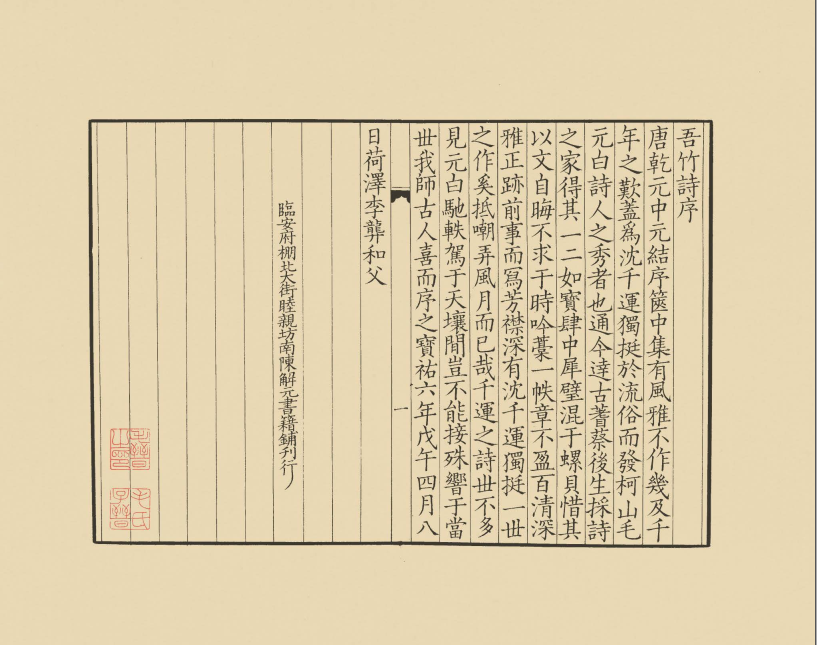 吾竹詩序
唐乾元中元結序篋中集有風雅不作幾及千
年之歎蓋爲沈千運獨挺於流俗而發柯山毛
元白詩人之秀者也通今達古蓍蔡後生採詩
之家得其一二如寳肆中犀璧混于螺貝惜其
以文自晦不求于時吟藁一帙章不盈百清深
雅正跡前事而寫芳襟深有沈千運獨挺一世
之作奚抵嘲弄風月而已哉千運之詩世不多
見元白馳軼駕于天壤間豈不能接殊響于當
世我師古人喜而序之寳祐六年戊午四月八
日荷澤李龏和父
一
臨安府棚北大街睦親坊南陳解元書籍鋪刊行
毛晉之印
毛氏子晉